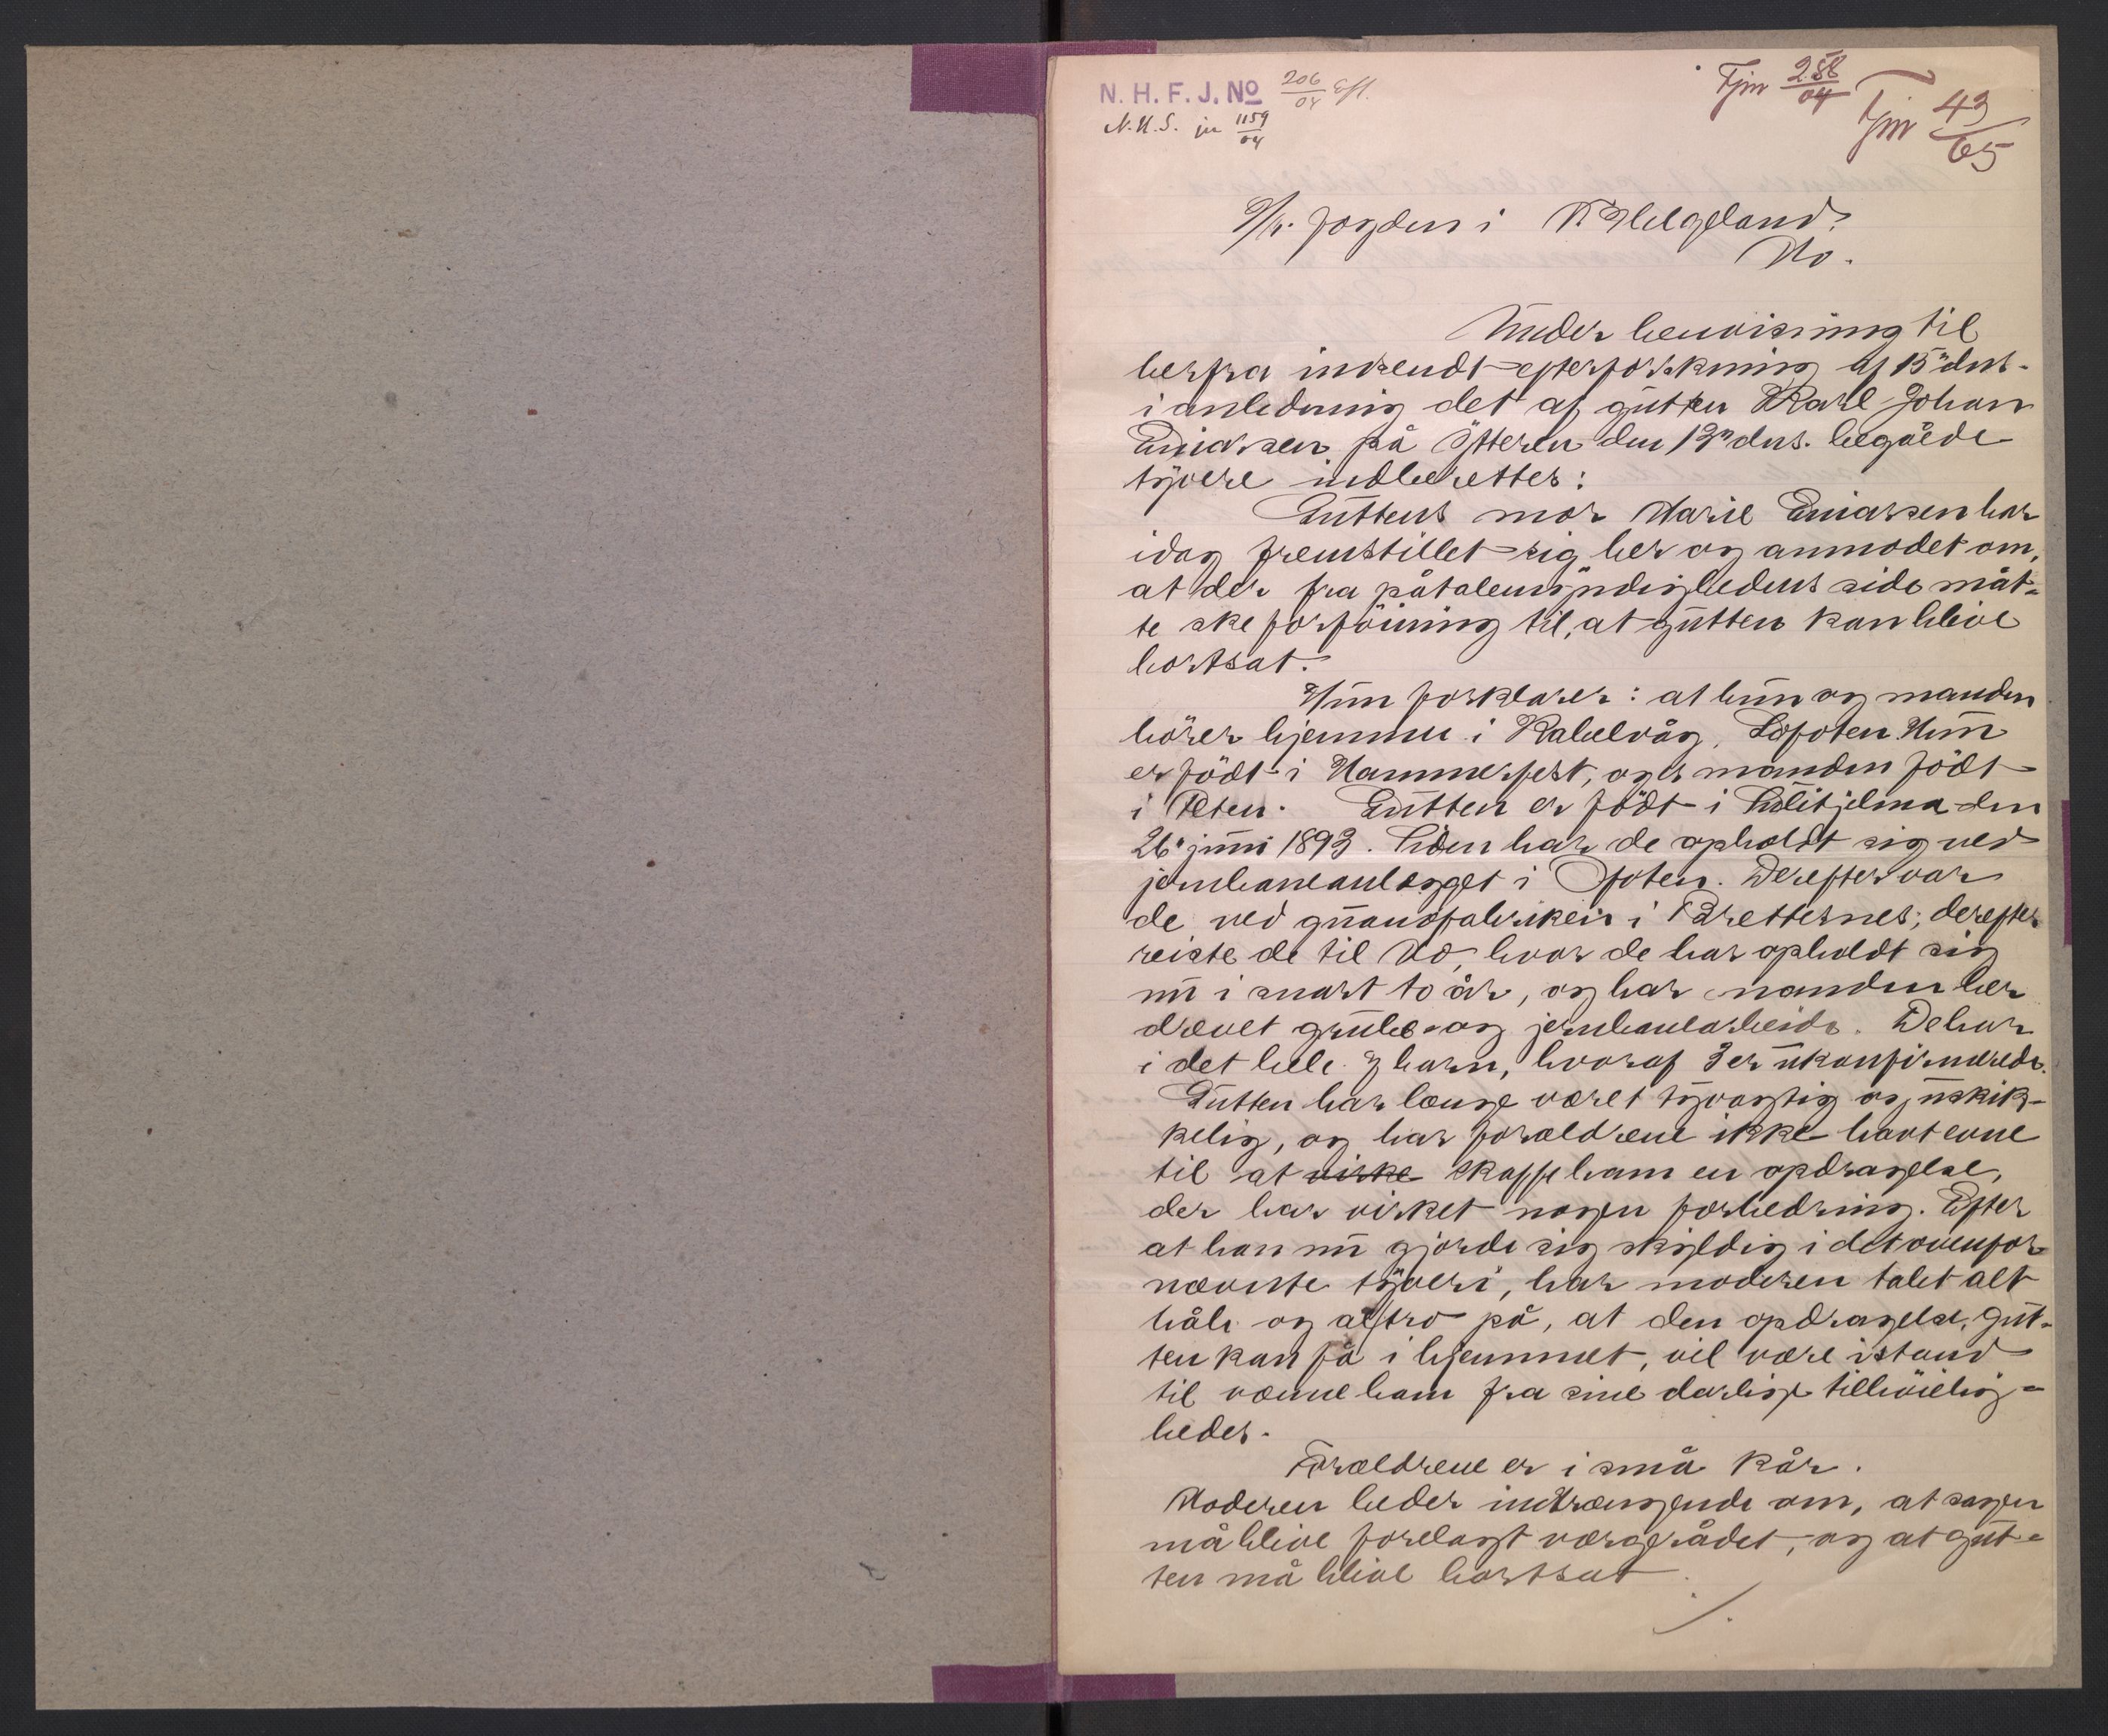 N. H. F. J. No 206/04 Eft.
N.H.S. jn 1159/04
Fjm 258/04
Fjm 43/05
Hr. fogden i N Helgeland.
Mo.
Under henvisning til
herfra indsendt efterforskning af 15de ds.
i anledning det af gutten Karl Johan
Einarsen på Ytteren den 13de ds. begåede
tyveri indberettes:
Guttens mor Marie Einarsen har
idag fremstillet sig her og anmodet om,
at der fra påtalemyndighedens side måt-
te ske forföining til, at gutten kan blive
bortsat.
Hun forklarer: at hun og manden
hörer hjemme i Kabelvåg, Lofoten. Hun
er födt i Hammerfest, og er manden födt
i . Gutten er födt i Sulitjelma den
26 juni 1893. Siden har de opholdt sig ved
jernbaneanlægget i Ofoten. Derefter var
de ved guanofabriken i Brettesnes; derefter
reiste de til Mo, hvor de har opholdt sig
nu i snart to år, og har manden her
drevet grube- og jernbanearbeide. De har
i det hele 7 barn, hvoraf 3 er ukonfirmerede.
Gutten har længe været tyvagtig og uskik-
kelig, og har forældrene ikke havt evne
til at virke skaffe ham en opdragelse,
der har virket nogen forbedring. Efter
at han nu gjorde sig skyldig i det ovenfor
nævnte tyveri, har moderen tabt alt
håb og al tro på, at den opdragelse, gut-
ten kan få i hjemmet, vil være istand
til vænne ham fra sine darlige tilböielig-
heder.
Forældrene er i små kår.
Moderen beder indtrængende om, at sagen
må blive forelagt værgerådet, og at gut-
ten må blive bortsat.
./.